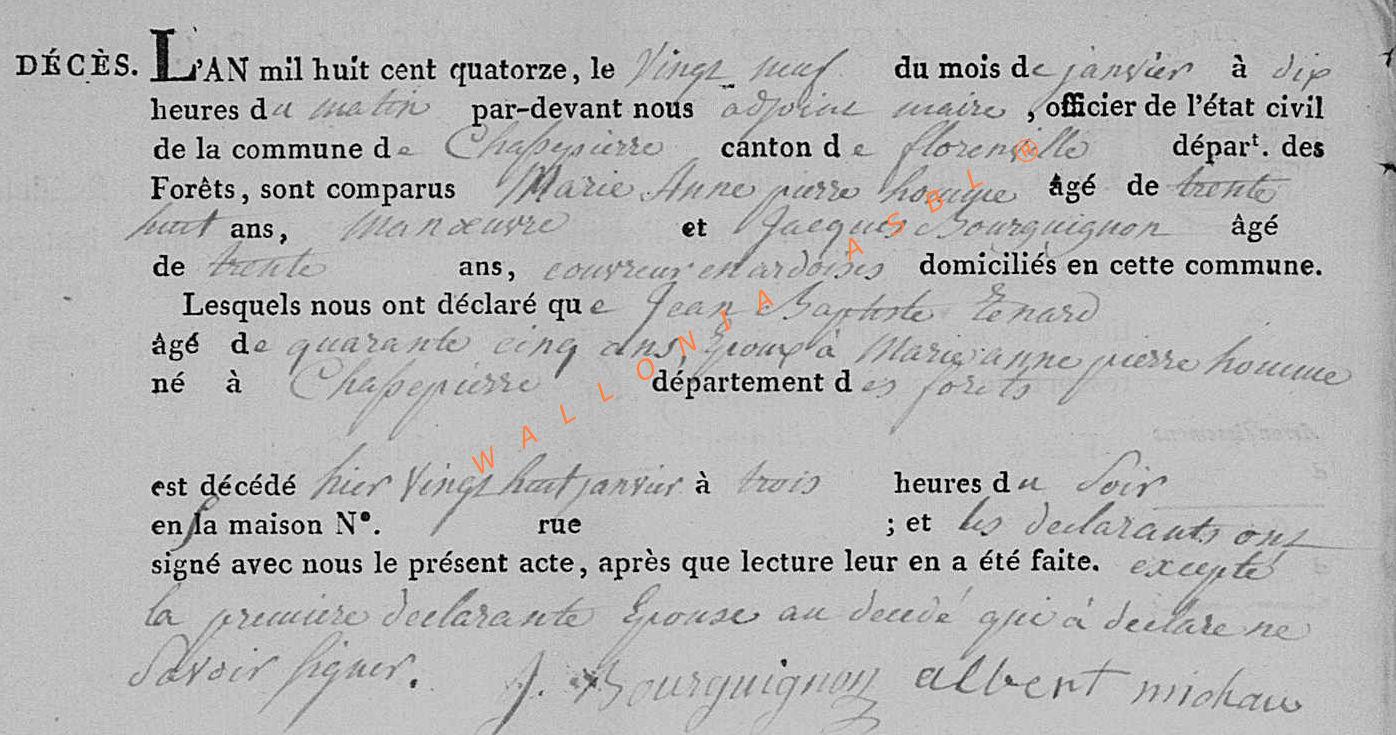 DÉCÈS. L'AN mil huit cent quatorze, le Vingt neuf du mois de janvier à dix
heures du matin par-devant nous adjoint maire, officier de l'état civil
de la commune de Chassepierre canton de florenville départ. des
Forêts, sont comparus Marie Anne pierre homme âgé de trente
huit ans, Manœuvre et Jacques Bourguignon âgé
de trente ans, couvreur en ardoises domiciliés en cette commune.
Lesquels nous ont déclaré que Jean Baptiste
âgé de quarante cinq ans, Epoux à Marie anne pierre homme
né à Chassepierre département des forets
est décédé hier Vingt huit janvier à trois heures du Soir
en sa maison N°. rue ; et les declarants ont
signé avec nous le présent acte, après que lecture leur en a été faite. excepté
la premiere declarante Epouse au decedé qui à declare ne
Savoir signer. J. Bourguignon albert michau
WALLONIA ASBL ®